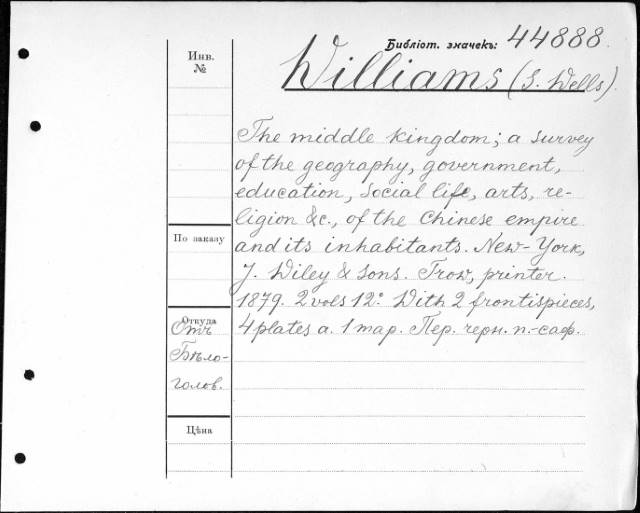 Библіот. значекъ: 44888.
Инв.
№
Williams (S. Wells).
The middle kingdom; a survey
of the geography, government,
education, social life, arts, re-
ligion &c., of the Chinese empire
and its inhabitants. New-York,
J. Wiley & Sons. Trow, printer.
1879. 2 vols 12°. With 2 frontispieces,
4 plates a. 1 map. Пер. черн. п.-саф.
По заказу
Откуда
Отъ
Бѣло-
голов.
Цѣна